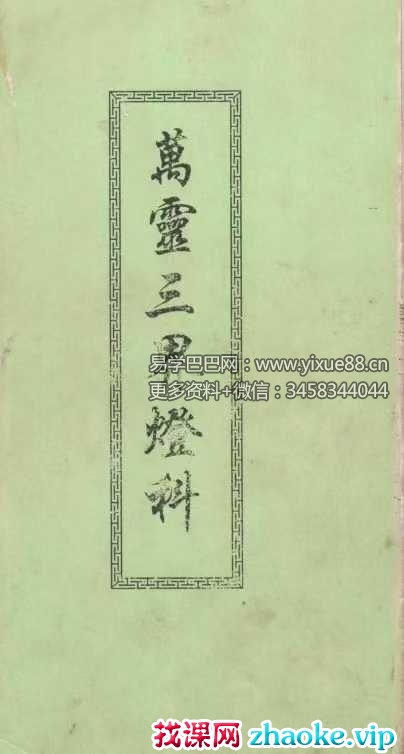 萬靈三界燈科
易学巴巴网：www.yixue88.cn
更多资料+微信：3458344044
找课网 zhaoke.vip